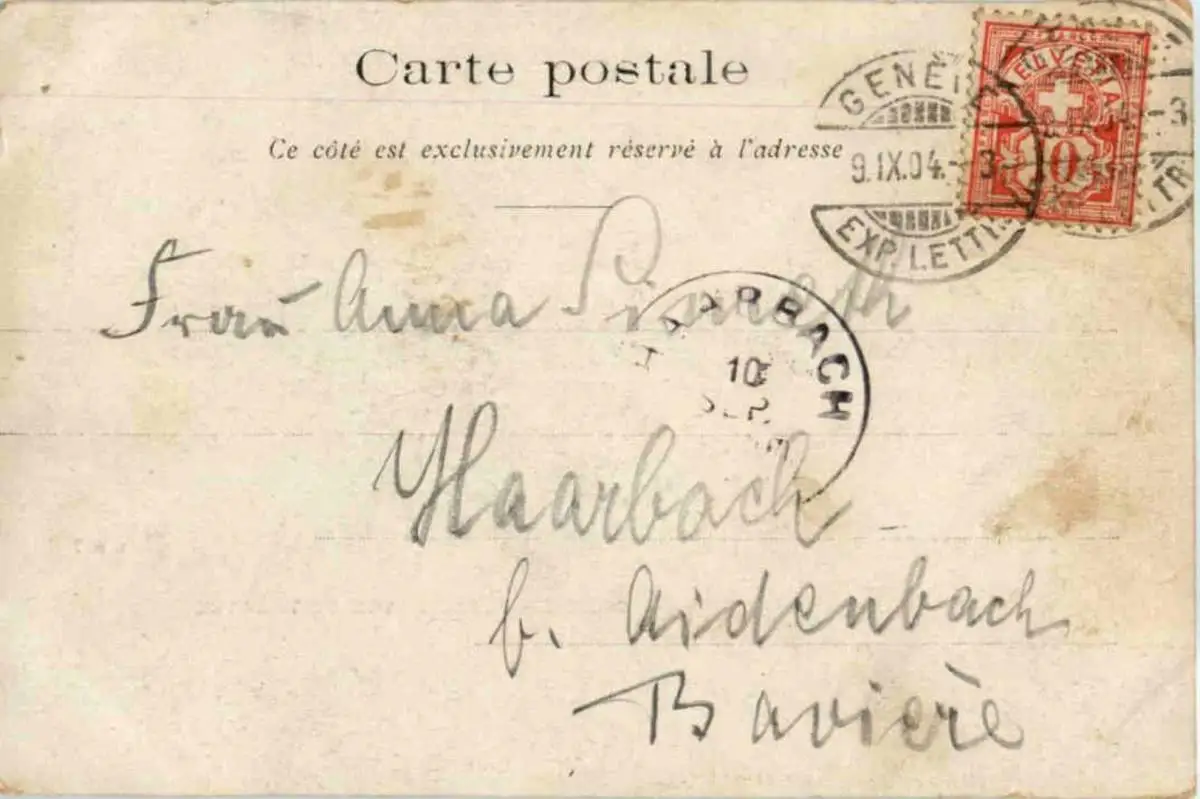 Carte postale
Ce côté est exclusivement réservé à l'adresse
GENÈ
9.IX.04.-3
EXP. LETTR
HELVETIA
10
-3
TTR
Frau Anna
HAARBACH
10
SEP
Haarbach
b. Aidenbach
Bavière